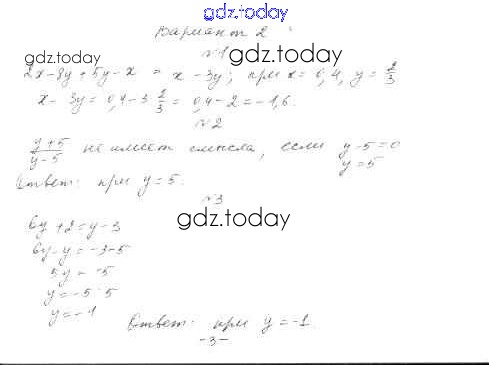 gdz.today
Вариант 2
№1
gdz.today gdz.today
2x-8y+5y-x = x-3y; при x=0,4, y=2/3
x-3y=0,4-3·2/3=0,4-2=-1,6.
№2
y+5/y-5 не имеет смысла, если y-5=0
y=5
Ответ: при y=5.
№3
gdz.today
6y+2=y-3
6y-y=-3-5
5y=-5
y=-5:5
y=-1
Ответ: при y=-1.
-3-
gdz.today gdz.today